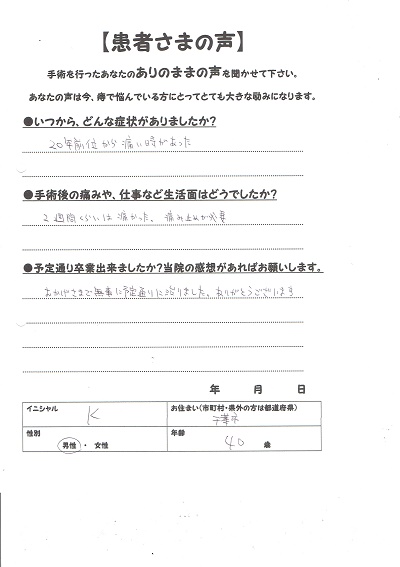 【患者さまの声】
手術を行ったあなたのありのままの声を聞かせて下さい。
あなたの声は今、痔で悩んでいる方にとってとても大きな励みになります。
●いつから、どんな症状がありましたか?
20年前位から痛い時があった
●手術後の痛みや、仕事など生活面はどうでしたか?
2週間くらいは痛かった。痛み止めが必要
●予定通り卒業出来ましたか?当院の感想があればお願いします。
おかげさまで無事に予定通りに治りました。ありがとうございます
年 月 日
イニシャル K
お住まい(市町村・県外の方は都道府県)
千葉市
性別
男性 ・ 女性
年齢
40 歳